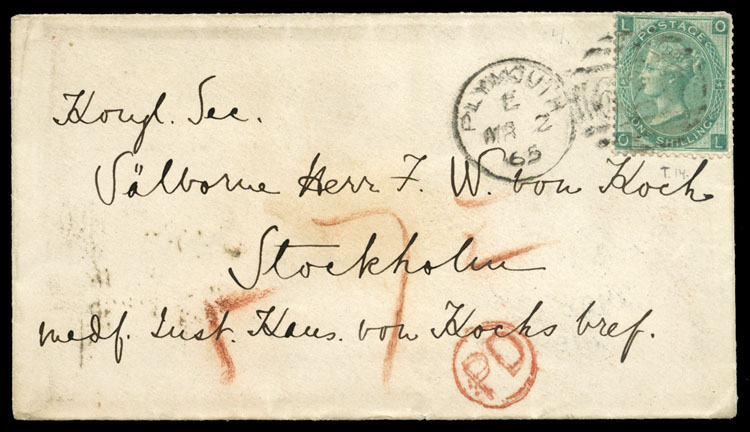 L O
POSTAGE
ONE SHILLING
O L
T.14.
PLYMOUTH
E
MR 2
65
Kongl. Sec.
Välborne Herr F. W. von Koch
Stockholm
medf. Inst. Haus. von Kochs bref.
PD